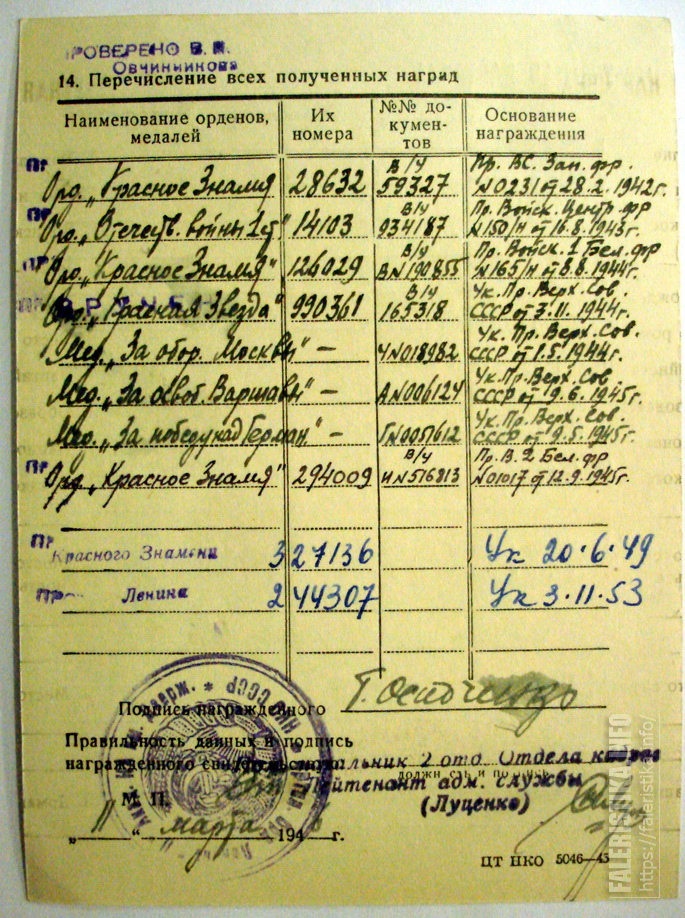 ПРОВЕРЕНО В. К.
Овчинникова
14. Перечисление всех полученных наград
Наименование орденов, медалей
Их номера
№№ документов
Основание награждения
Орд. „Красное Знамя 28632 В/У 59327 Пр. ВС. Зап. фр. №0231 от 28.2.1942г.
Орд. „Отечеств. войны 1 ст" 14103 В/У 934187 Пр. Войск. Центр. фр №150/н от 16.8.1943г
Орд. „Красное Знамя" 126029 В/У В№190855 Пр. Войск. 1 Бел. фр №165/н от 8.8.1944г.
Орд. „Красная Звезда" 990361 В/У 165318 Ук. Пр. Верх. Сов. СССР от 3.11.1944г.
Мед. „За обор. Москвы" – Ч№018982 Ук. Пр. Верх. Сов. СССР от 1.5.1944г.
Мед. „За освоб. Варшавы" – А№006124 Ук. Пр. Верх. Сов СССР от 9.6.1945г
Мед. „За победу над Герман." – Г№0051612 Ук. Пр. Верх. Сов. СССР от 9.5.1945г.
Орд. „Красное Знамя" 294009 В/У И№516813 Пр. В. 2 Бел. фр №01017 от 12.9.1945г.
Красного Знамени 3 27136 Ук 20.6.49
Ленина 2 44307 Ук 3.11.53
Подпись награжденного
Правильность данных и подпись
награжденного
Начальник 2 отд. Отдела кадров
должность и подпись
Лейтенант адм. службы
(Луценко)
М. П.
„11" марта 194 г.
ЦТ НКО 5046—45
FALERISTIKA.INFO
https://faleristika.info/